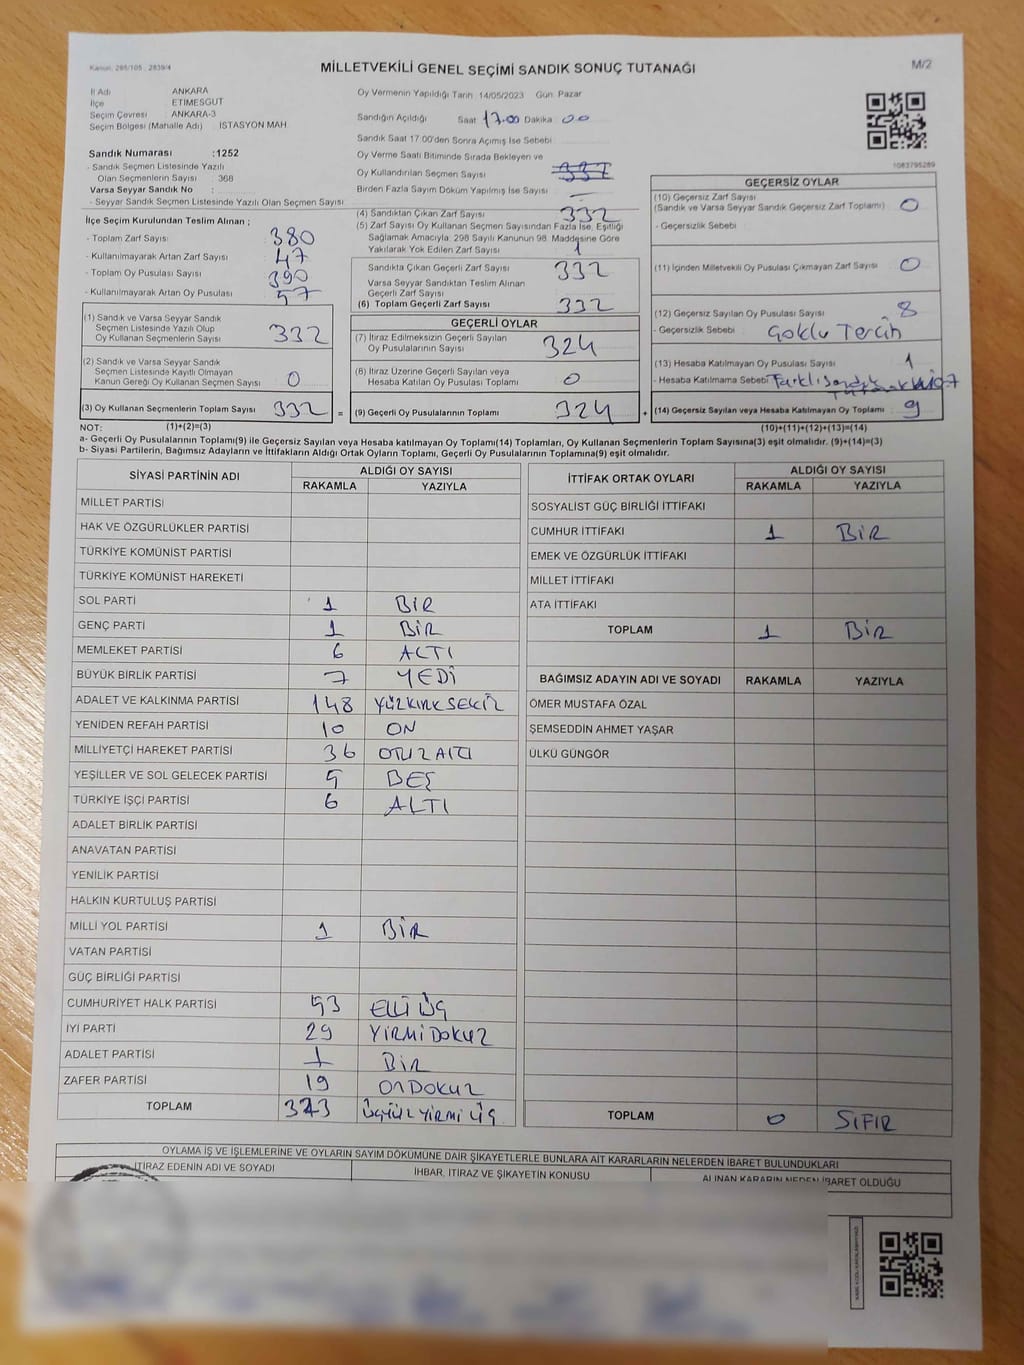 Kanun: 298/105 2839/4
MİLLETVEKİLİ GENEL SEÇİMİ SANDIK SONUÇ TUTANAĞI
M/2
İl Adı ANKARA
İlçe ETİMESGUT
Seçim Çevresi ANKARA-3
Seçim Bölgesi (Mahalle Adı) : İSTASYON MAH
Sandık Numarası :1252
- Sandık Seçmen Listesinde Yazılı
Olan Seçmenlerin Sayısı : 368
Varsa Seyyar Sandık No :
- Seyyar Sandık Seçmen Listesinde Yazılı Olan Seçmen Sayısı :
İlçe Seçim Kurulundan Teslim Alınan ;
- Toplam Zarf Sayısı : 380
- Kullanılmayarak Artan Zarf Sayısı : 47
- Toplam Oy Pusulası Sayısı : 390
- Kullanılmayarak Artan Oy Pusulası : 57
(1) Sandık ve Varsa Seyyar Sandık
Seçmen Listesinde Yazılı Olup
Oy Kullanan Seçmenlerin Sayısı 332
(2) Sandık ve Varsa Seyyar Sandık
Seçmen Listesinde Kayıtlı Olmayan
Kanun Gereği Oy Kullanan Seçmen Sayısı 0
(3) Oy Kullanan Seçmenlerin Toplam Sayısı 332 =
Oy Vermenin Yapıldığı Tarih : 14/05/2023 Gün: Pazar
Sandığın Açıldığı Saat 17.00 Dakika 00
Sandık Saat 17:00'den Sonra Açımış İse Sebebi :
Oy Verme Saati Bitiminde Sırada Bekleyen ve
Oy Kullandırılan Seçmen Sayısı
Birden Fazla Sayım Döküm Yapılmış İse Sayısı
(4) Sandıktan Çıkan Zarf Sayısı 332
(5) Zarf Sayısı Oy Kullanan Seçmen Sayısından Fazla İse, Eşitliği
Sağlamak Amacıyla; 298 Sayılı Kanunun 98. Maddesine Göre
Yakılarak Yok Edilen Zarf Sayısı : 1
Sandıkta Çıkan Geçerli Zarf Sayısı 332
Varsa Seyyar Sandıktan Teslim Alınan
Geçerli Zarf Sayısı
(6) Toplam Geçerli Zarf Sayısı 332
GEÇERLİ OYLAR
(7) İtiraz Edilmeksizin Geçerli Sayılan
Oy Pusulalarının Sayısı 324
(8) İtiraz Üzerine Geçerli Sayılan veya
Hesaba Katılan Oy Pusulası Toplamı 0
(9) Geçerli Oy Pusulalarının Toplamı 324 +
1083795289
GEÇERSİZ OYLAR
(10) Geçersiz Zarf Sayısı
(Sandık ve Varsa Seyyar Sandık Geçersiz Zarf Toplamı) : 0
- Geçersizlik Sebebi :
(11) İçinden Milletvekili Oy Pusulası Çıkmayan Zarf Sayısı : 0
(12) Geçersiz Sayılan Oy Pusulası Sayısı 8
- Geçersizlik Sebebi : Çoklu Tercih
(13) Hesaba Katılmayan Oy Pusulası Sayısı 1
- Hesaba Katılmama Sebebi Farklı Sandık
(14) Geçersiz Sayılan veya Hesaba Katılmayan Oy Toplamı : 9
NOT: (1)+(2)=(3) (10)+(11)+(12)+(13)=(14)
a- Geçerli Oy Pusulalarının Toplamı(9) ile Geçersiz Sayılan veya Hesaba katılmayan Oy Toplamı(14) Toplamları, Oy Kullanan Seçmenlerin Toplam Sayısına(3) eşit olmalıdır. (9)+(14)=(3)
b- Siyasi Partilerin, Bağımsız Adayların ve İttifakların Aldığı Ortak Oyların Toplamı, Geçerli Oy Pusulalarının Toplamına(9) eşit olmalıdır.
SİYASİ PARTİNİN ADI ALDIĞI OY SAYISI
RAKAMLA YAZIYLA
MİLLET PARTİSİ
HAK VE ÖZGÜRLÜKLER PARTİSİ
TÜRKİYE KOMÜNİST PARTİSİ
TÜRKİYE KOMÜNİST HAREKETİ
SOL PARTİ 1 BİR
GENÇ PARTİ 1 BİR
MEMLEKET PARTİSİ 6 ALTI
BÜYÜK BİRLİK PARTİSİ 7 YEDİ
ADALET VE KALKINMA PARTİSİ 148 YÜZKIRKSEKİZ
YENİDEN REFAH PARTİSİ 10 ON
MİLLİYETÇİ HAREKET PARTİSİ 36 OTUZALTI
YEŞİLLER VE SOL GELECEK PARTİSİ 5 BEŞ
TÜRKİYE İŞÇİ PARTİSİ 6 ALTI
ADALET BİRLİK PARTİSİ
ANAVATAN PARTİSİ
YENİLİK PARTİSİ
HALKIN KURTULUŞ PARTİSİ
MİLLİ YOL PARTİSİ 1 BİR
VATAN PARTİSİ
GÜÇ BİRLİĞİ PARTİSİ
CUMHURİYET HALK PARTİSİ 53 ELLİ ÜÇ
İYİ PARTİ 29 YİRMİDOKUZ
ADALET PARTİSİ 1 BİR
ZAFER PARTİSİ 19 ONDOKUZ
TOPLAM 323 ÜÇYÜZ YİRMİ ÜÇ
İTTİFAK ORTAK OYLARI ALDIĞI OY SAYISI
RAKAMLA YAZIYLA
SOSYALİST GÜÇ BİRLİĞİ İTTİFAKI
CUMHUR İTTİFAKI 1 BİR
EMEK VE ÖZGÜRLÜK İTTİFAKI
MİLLET İTTİFAKI
ATA İTTİFAKI
TOPLAM 1 BİR
BAĞIMSIZ ADAYIN ADI VE SOYADI RAKAMLA YAZIYLA
ÖMER MUSTAFA ÖZAL
ŞEMSEDDİN AHMET YAŞAR
ÜLKÜ GÜNGÖR
TOPLAM 0 SIFIR
OYLAMA İŞ VE İŞLEMLERİNE VE OYLARIN SAYIM DÖKÜMÜNE DAİR ŞİKAYETLERLE BUNLARA AİT KARARLARIN NELERDEN İBARET BULUNDUKLARI
İTİRAZ EDENİN ADI VE SOYADI İHBAR, İTİRAZ VE ŞİKAYETİN KONUSU ALINAN KARARIN NEDEN İBARET OLDUĞU